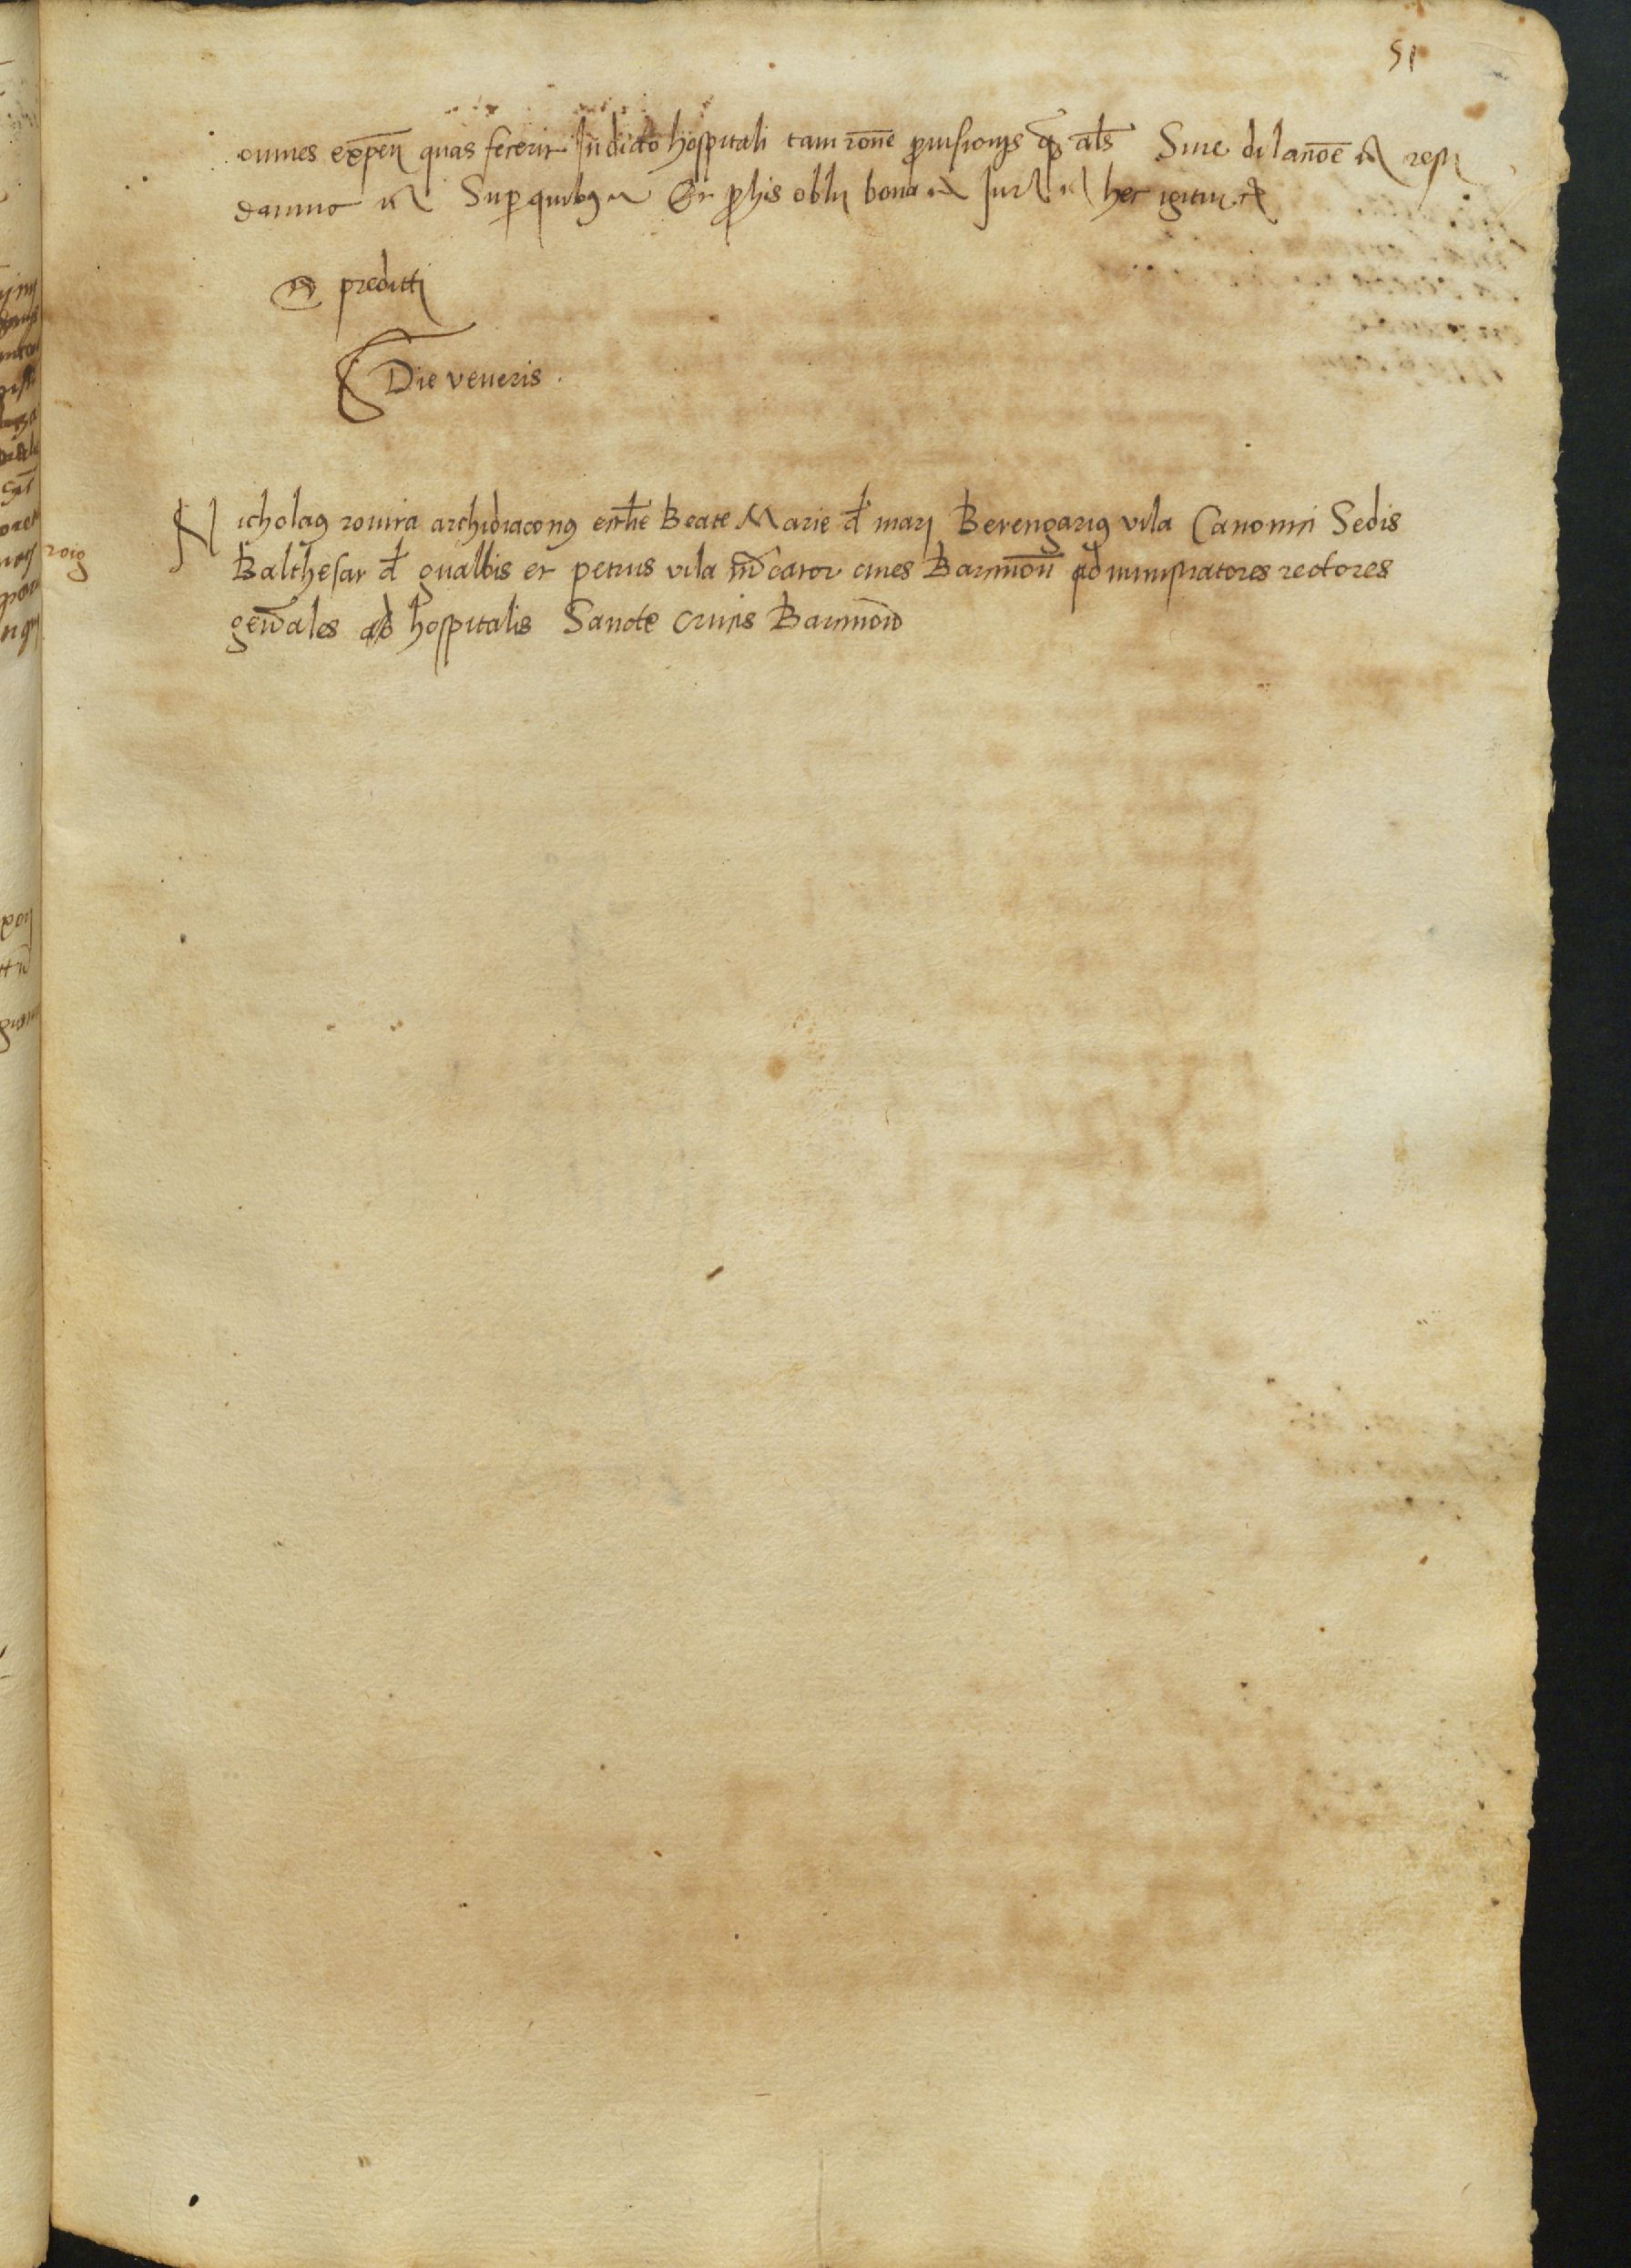 51
omnes expen quas fecerit In dicto hospitali tam rone prouisionis q als Sine dilanoe etc resti
damno etc Super quibus etc Et pro his oblig bona etc Jur etc hec igitur etc
predicti
Die veneris
Nicholaus rouira archidiaconus ecclie Beate Marie de mari Berengarius vila Canonici Sedis
roig
Balthesar de gualbis et petrus vila mcator ciues Barcinon administratores rectores
generales hospitalis Sancte crucis Barcinon